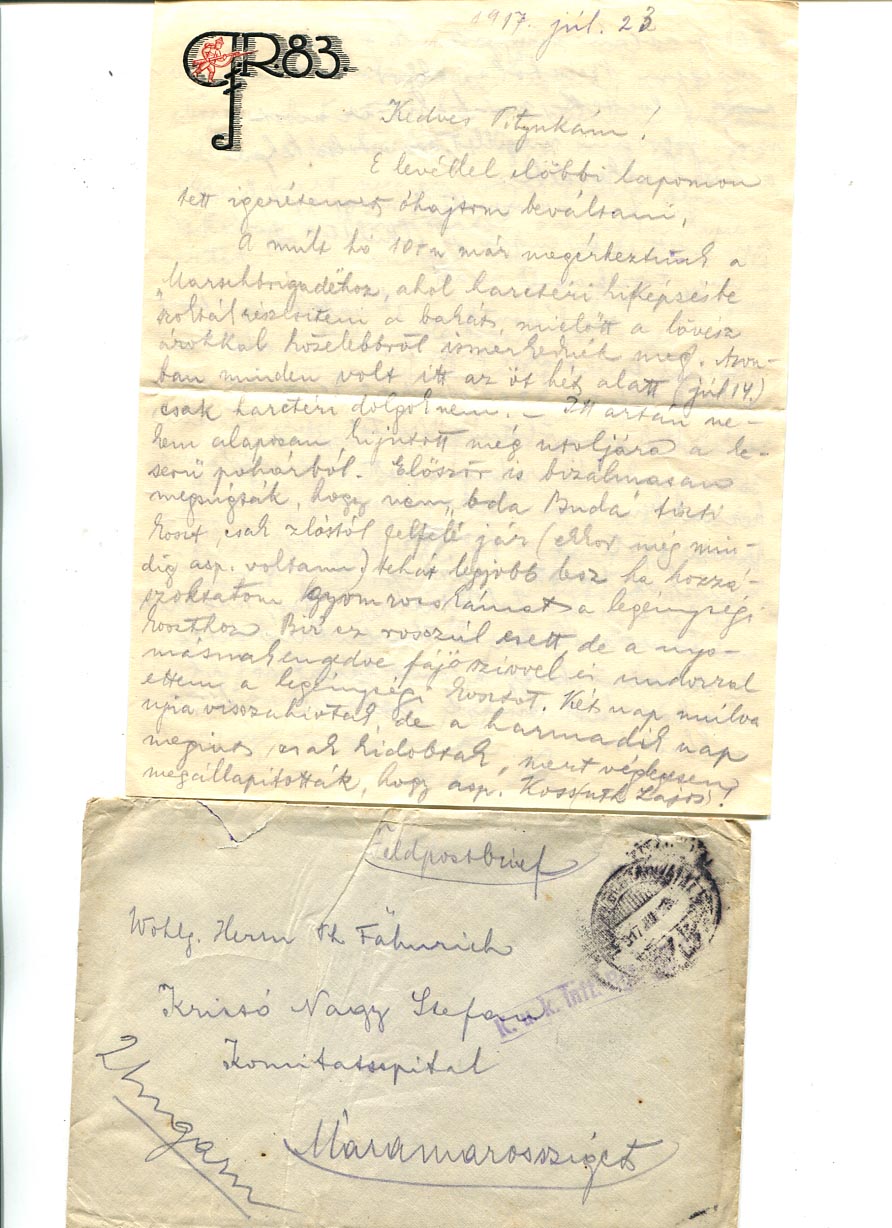 1917. júl. 23
JR. 83.
Kedves Pityukám!
E levéllel előbbi lapomon
tett igéretemet óhajtom beváltani,
A múlt hó 10-n már megérkeztünk a
"Marschbrigadé"hoz, ahol harctéri kiképzésbe
szokták részesíteni a bakát, mielőtt a lövész
árokkal közelebbről ismerkednék meg. Azon-
ban minden volt itt az öt hét alatt (júl 14.)
csak harctéri dolgok nem. – Itt aztán ne-
kem alaposan kijutott még utoljára a ke-
serű pohárból. Először is bizalmasan
megsúgták, hogy nem oda Buda tiszti
koszt, csak zlástól felfelé jár (ekkor még min-
dig asp. voltam) tehát legjobb lesz ha hozzá-
szoktatom gyomrocskámat a legénységi
koszthoz. Bár ez rosszúl esett, de a nyo-
másnak engedve fájó szívvel és undorral
ettem a legénységi kosztot. Két nap múlva
újra visszahívtak, de a harmadik nap
megint csak kidobtak, mert véglegesen
megállapították, hogy asp. Kossuth Lajos!
Feldpostbrief
Wohlg. Herrn Fähnrich
Kristó Nagy Stefan
K. u. k. Inft.
Komitatsspital
Máramarossziget
Ungarn